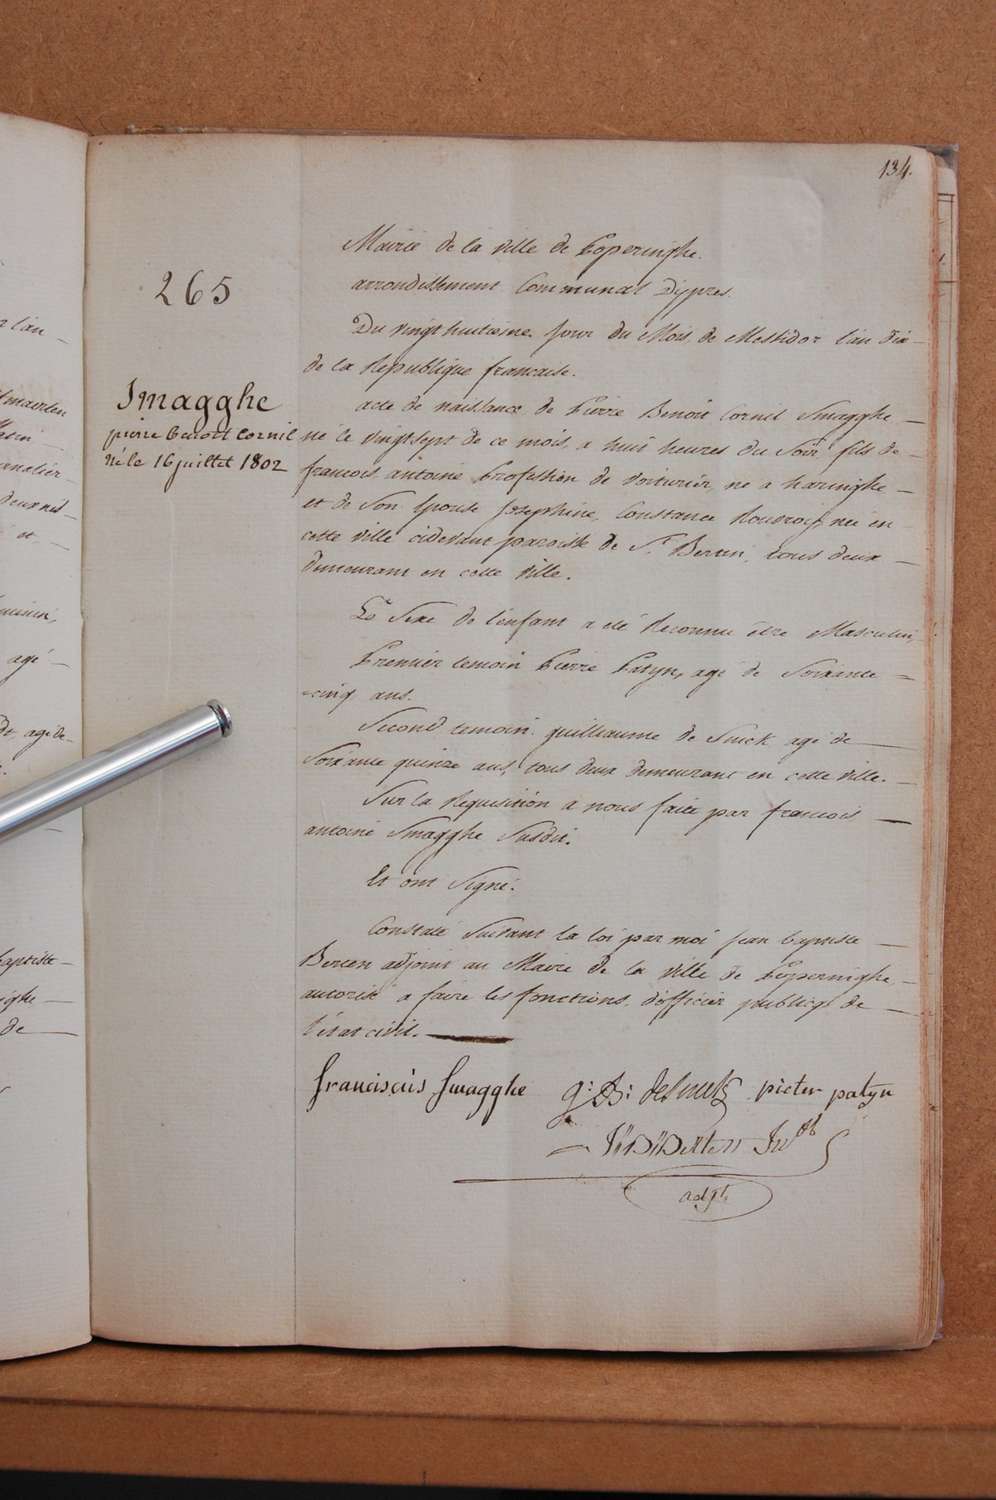 134.
265
Smagghe
pierre benoit Cornil
né le 16 juillet 1802
Mairie de la ville de Poperinghe.
arrondissement Communal D'ypres.
Du vingt huitieme Jour du Mois de Messidor l'an dix
de la Republique francaise.
acte de naissance de Pierre Benoit Cornil Smagghe
né le vingt sept de ce mois, a huit heures du Soir fils de
francois antoine Profession de voiturier, né a haringhe
et de Son Epouse Josephine, Constance née en
cette ville cidevant paroisse de St. Berten, tous deux
demeurant en cette ville.
Le Sexe de l'enfant a été Reconnu être Masculin,
Premier temoin Pierre Patyn, agé de Soixante
=cinq ans.
Second temoin guilliaume de Snick agé de
Soixante quinze ans, tous deux demeurant en cette ville.
Sur la Requisition a nous faite par francois
antoine Smagghe Susdit.
Et ont Signé.
Constaté Suivant la loi par moi Jean baptiste
Berten adjoint au Maire de la ville de Poperinghe
autorisé a faire les fonctions d'officier publicq de
l'état civil.
franciscus Smagghe
pieter patyn
Berten
adjt
l'an
baptiste
de
agé
agé de
et